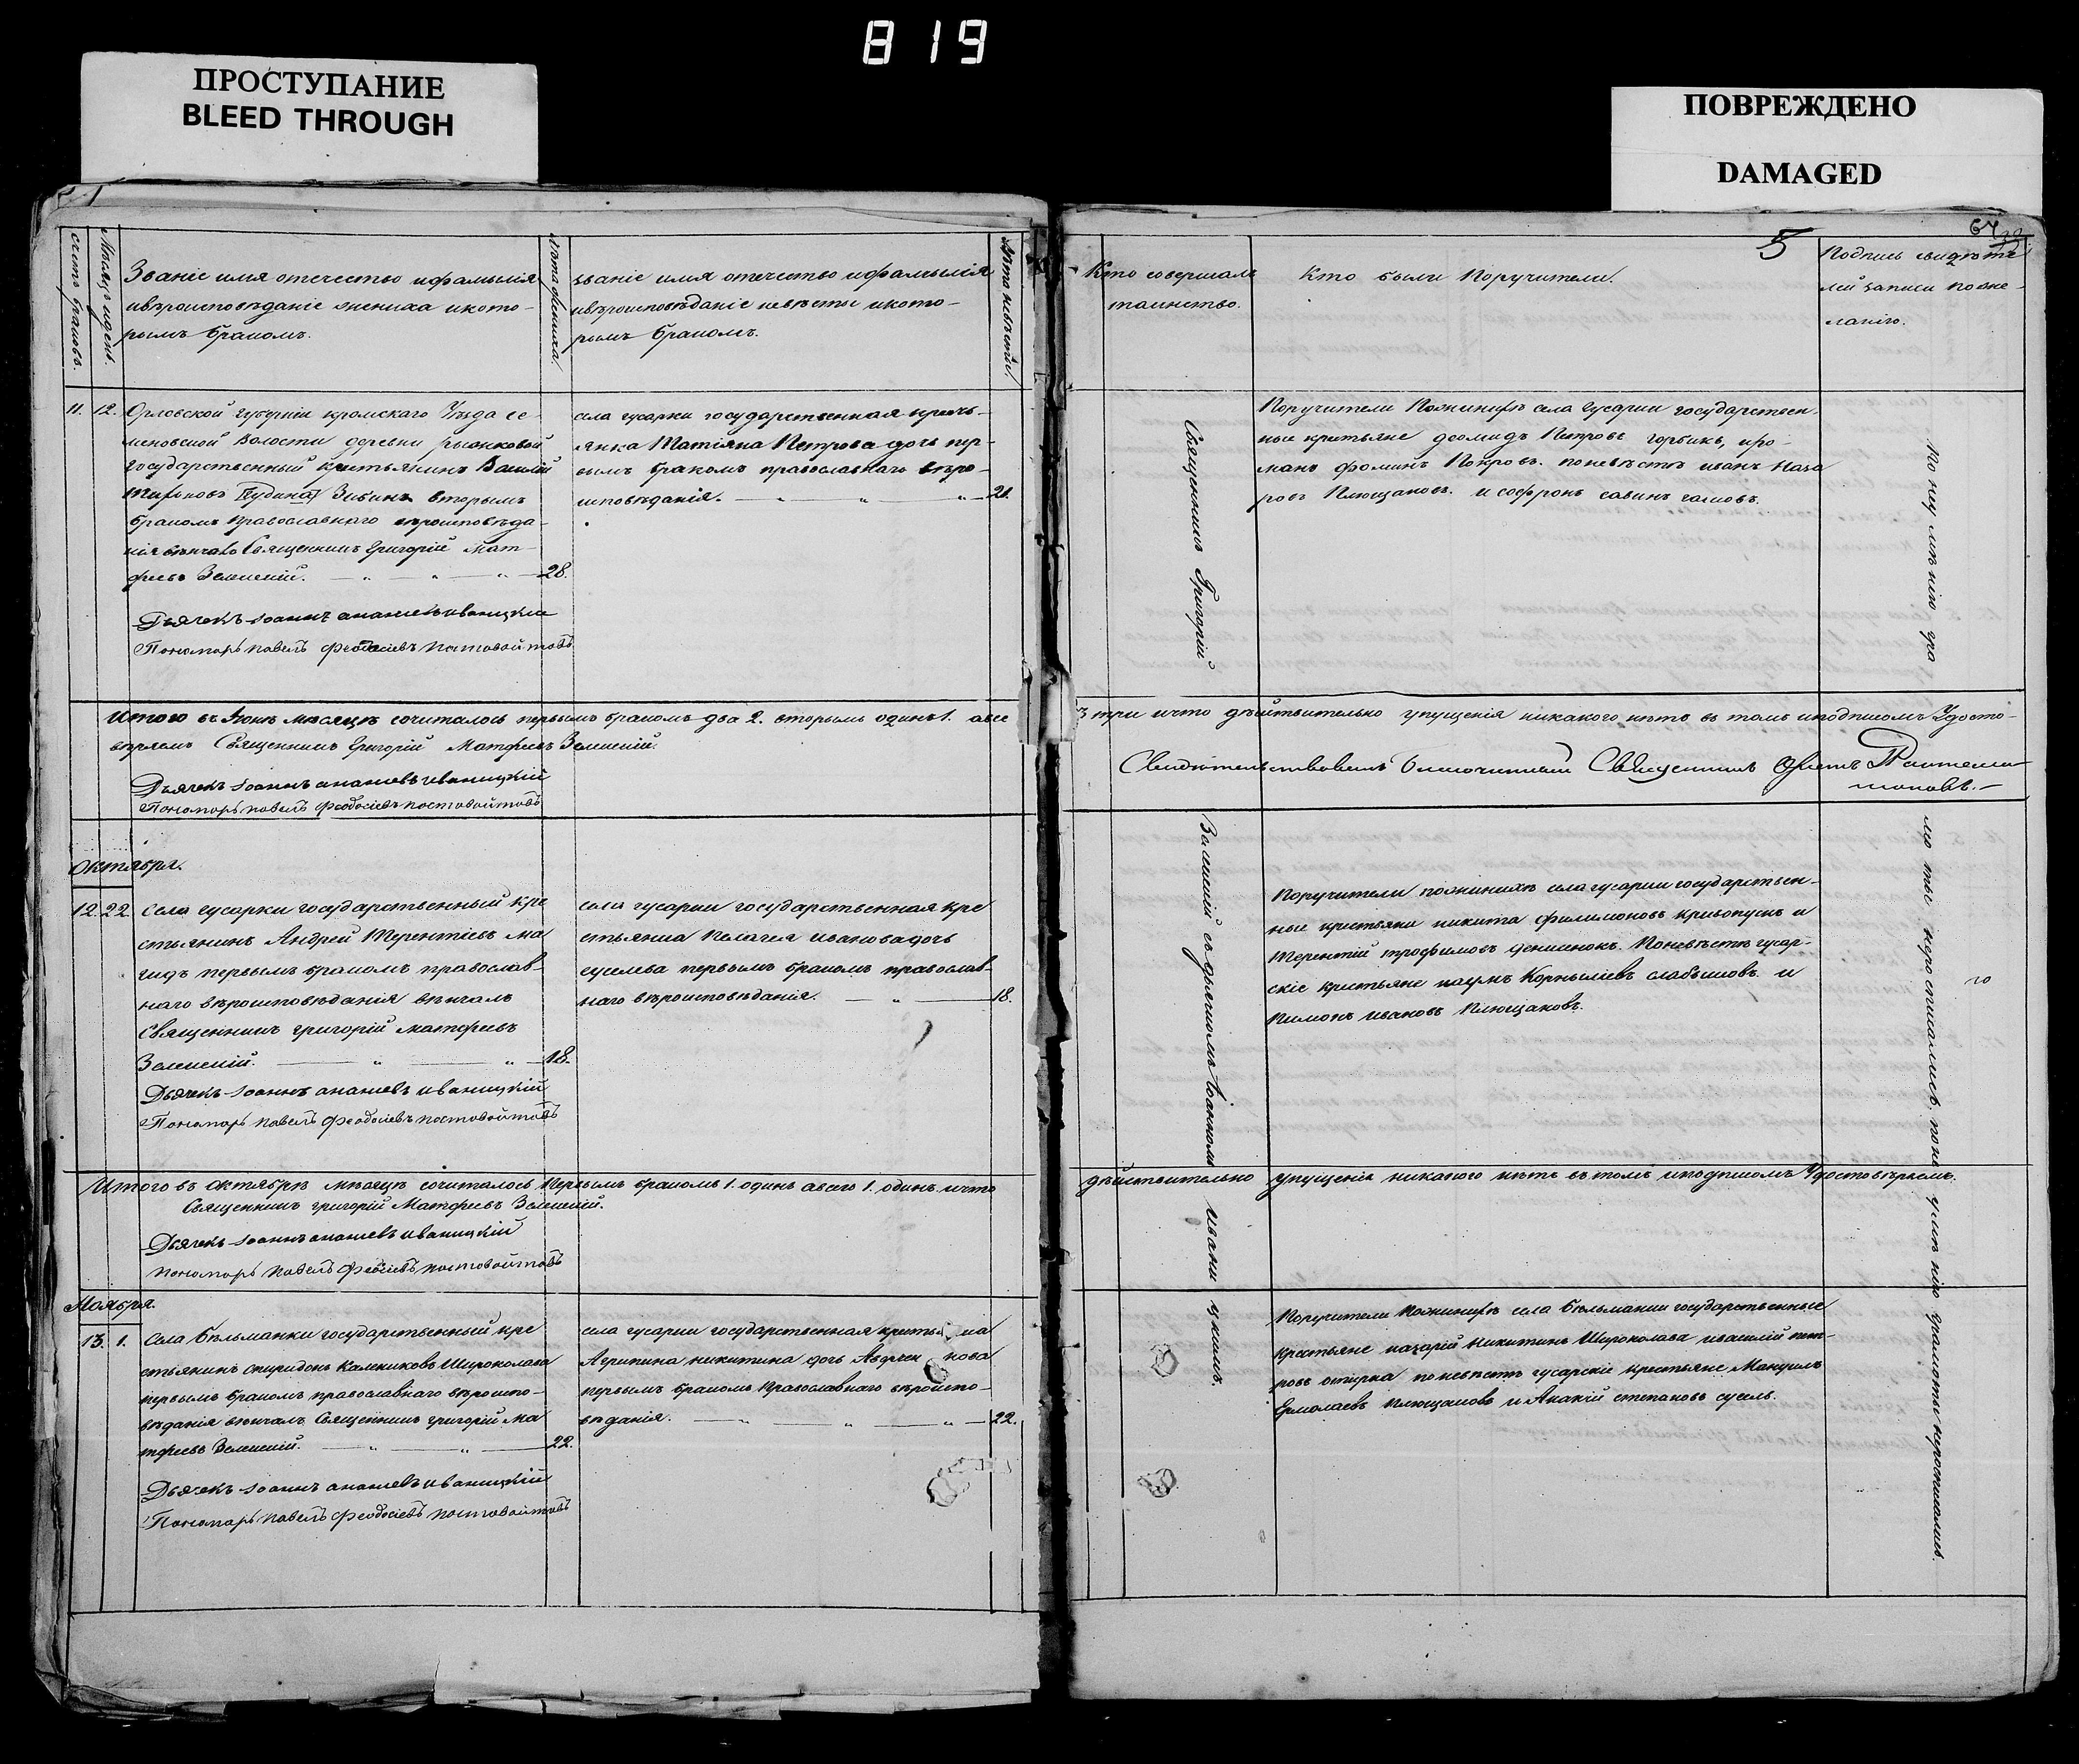 819
ПРОСТУПАНИЕ
BLEED THROUGH
ПОВРЕЖДЕНО
DAMAGED
счетъ браковъ.
Мѣсяцъ и день.
Званіе имя отечество и фамилія
и вѣроисповѣданіе жениха и кото-
рымъ бракомъ.
Лѣта жениха
званіе имя отечество и фамилія
и вѣроисповѣданіе невѣсты и кото-
рымъ бракомъ.
Лѣта невѣсты
11. 12. Орловской губерніи кромскаго Уѣзда се-
меновской Волости деревни
государственный крестьянинъ Василій
Зибинъ вторымъ
бракомъ православнаго вѣроисповѣда-
нія вѣнчалъ Священникъ Григорій Мат-
феевъ Зеленскій. — „ — „ — „ — 28.
Дьячекъ Іоаннъ ананіевъ иваницкій
Пономарь павелъ феодосіевъ постовойтовъ
села гусарки государственная кресть-
янка Татіяна Петрова дочь пер-
вымъ бракомъ православнаго вѣро-
исповѣданія. — „ — „ — „ — 21.
Итого въ Іюнѣ мѣсяцѣ сочиталось первымъ бракомъ два 2. вторымъ одинъ 1. а все
вѣряемъ Священникъ Григорій Матфеевъ Зеленскій.
Дьячекъ Іоаннъ ананіевъ иваницкій
Пономарь павелъ феодосіевъ постовойтовъ
Октября.
12. 22. Села гусарки государственный кре
стьянинъ Андрей Терентіевъ ма
гидъ первымъ бракомъ православ-
наго вѣроисповѣданія вѣнчалъ
Священникъ григорій матфеевъ
Зеленскій. — „ — „ — 18.
Дьячекъ Іоаннъ ананіевъ иваницкій
Пономарь павелъ феодосіевъ постовойтовъ
села гусарки государственная кре
стьянка Пелагея иванова дочь
суслева первымъ бракомъ православ-
наго вѣроисповѣданія. — „ — 18.
Итого въ октябрѣ мѣсяцѣ сочиталось первымъ бракомъ 1. одинъ а всего 1. одинъ и что
Священникъ григорій Матфеевъ Зеленскій.
Дьячекъ Іоаннъ ананіевъ иваницкій
пономарь павелъ феодосіевъ постовойтовъ
Ноября.
13. 1. Села Бѣльманки государственный кре
стьянинъ спиридонъ Широколава
первымъ бракомъ православнаго вѣроиспо-
вѣданія вѣнчалъ Священникъ григорій ма
тфеевъ Зеленскій. — „ — „ — 22.
Дьячекъ Іоаннъ ананіевъ иваницкій
Пономарь павелъ феодосіевъ постовойтовъ
села гусарки государственная
Агрипина никитина дочь
первымъ бракомъ православнаго вѣроиспо-
вѣданія. — „ — „ — „ — 22.
5
64
Кто совершалъ
таинство.
Кто были Поручители.
Подпись свидѣте
лей записи по же-
ланію.
Поручители По женихѣ села гусарки государствен-
ные крестьяне діомидъ Петровъ горбикъ, и ро-
манъ фоминъ Покровъ. по невѣстѣ иванъ наза
ровъ Плющаковъ. и софронъ савинъ
з три и что дѣйствительно упущенія никакого нѣтъ въ томъ и подписомъ Удосто-
Свидѣтельствовалъ Благочинный Священникъ
Поручители по женихѣ села гусарки государствен-
ные крестьяни никита филимоновъ кривопускъ и
Терентій трофимовъ По невѣстѣ гусар-
скіе крестьяне наумъ Корныліевъ слабышовъ и
Пимонъ ивановъ Плющаковъ.
дѣйствительно упущенія никакого нѣтъ въ томъ и подписомъ Удостовѣряемъ.
Поручители По женихѣ села бѣльманки государственные
крестьяне назарій Никитинъ Широколава и василій пет-
ровъ по невѣстѣ гусарскіе крестьяне Мануилъ
Ермолаевъ плющаковъ и Акакій степановъ сусль.
Священникъ Григорій
Зеленскій съ дьячкомъ Іоанномъ
Ивани цкимъ.
По неумѣнію гра
мо ты не росписались, по не
умѣ нію грамоты неросписались.